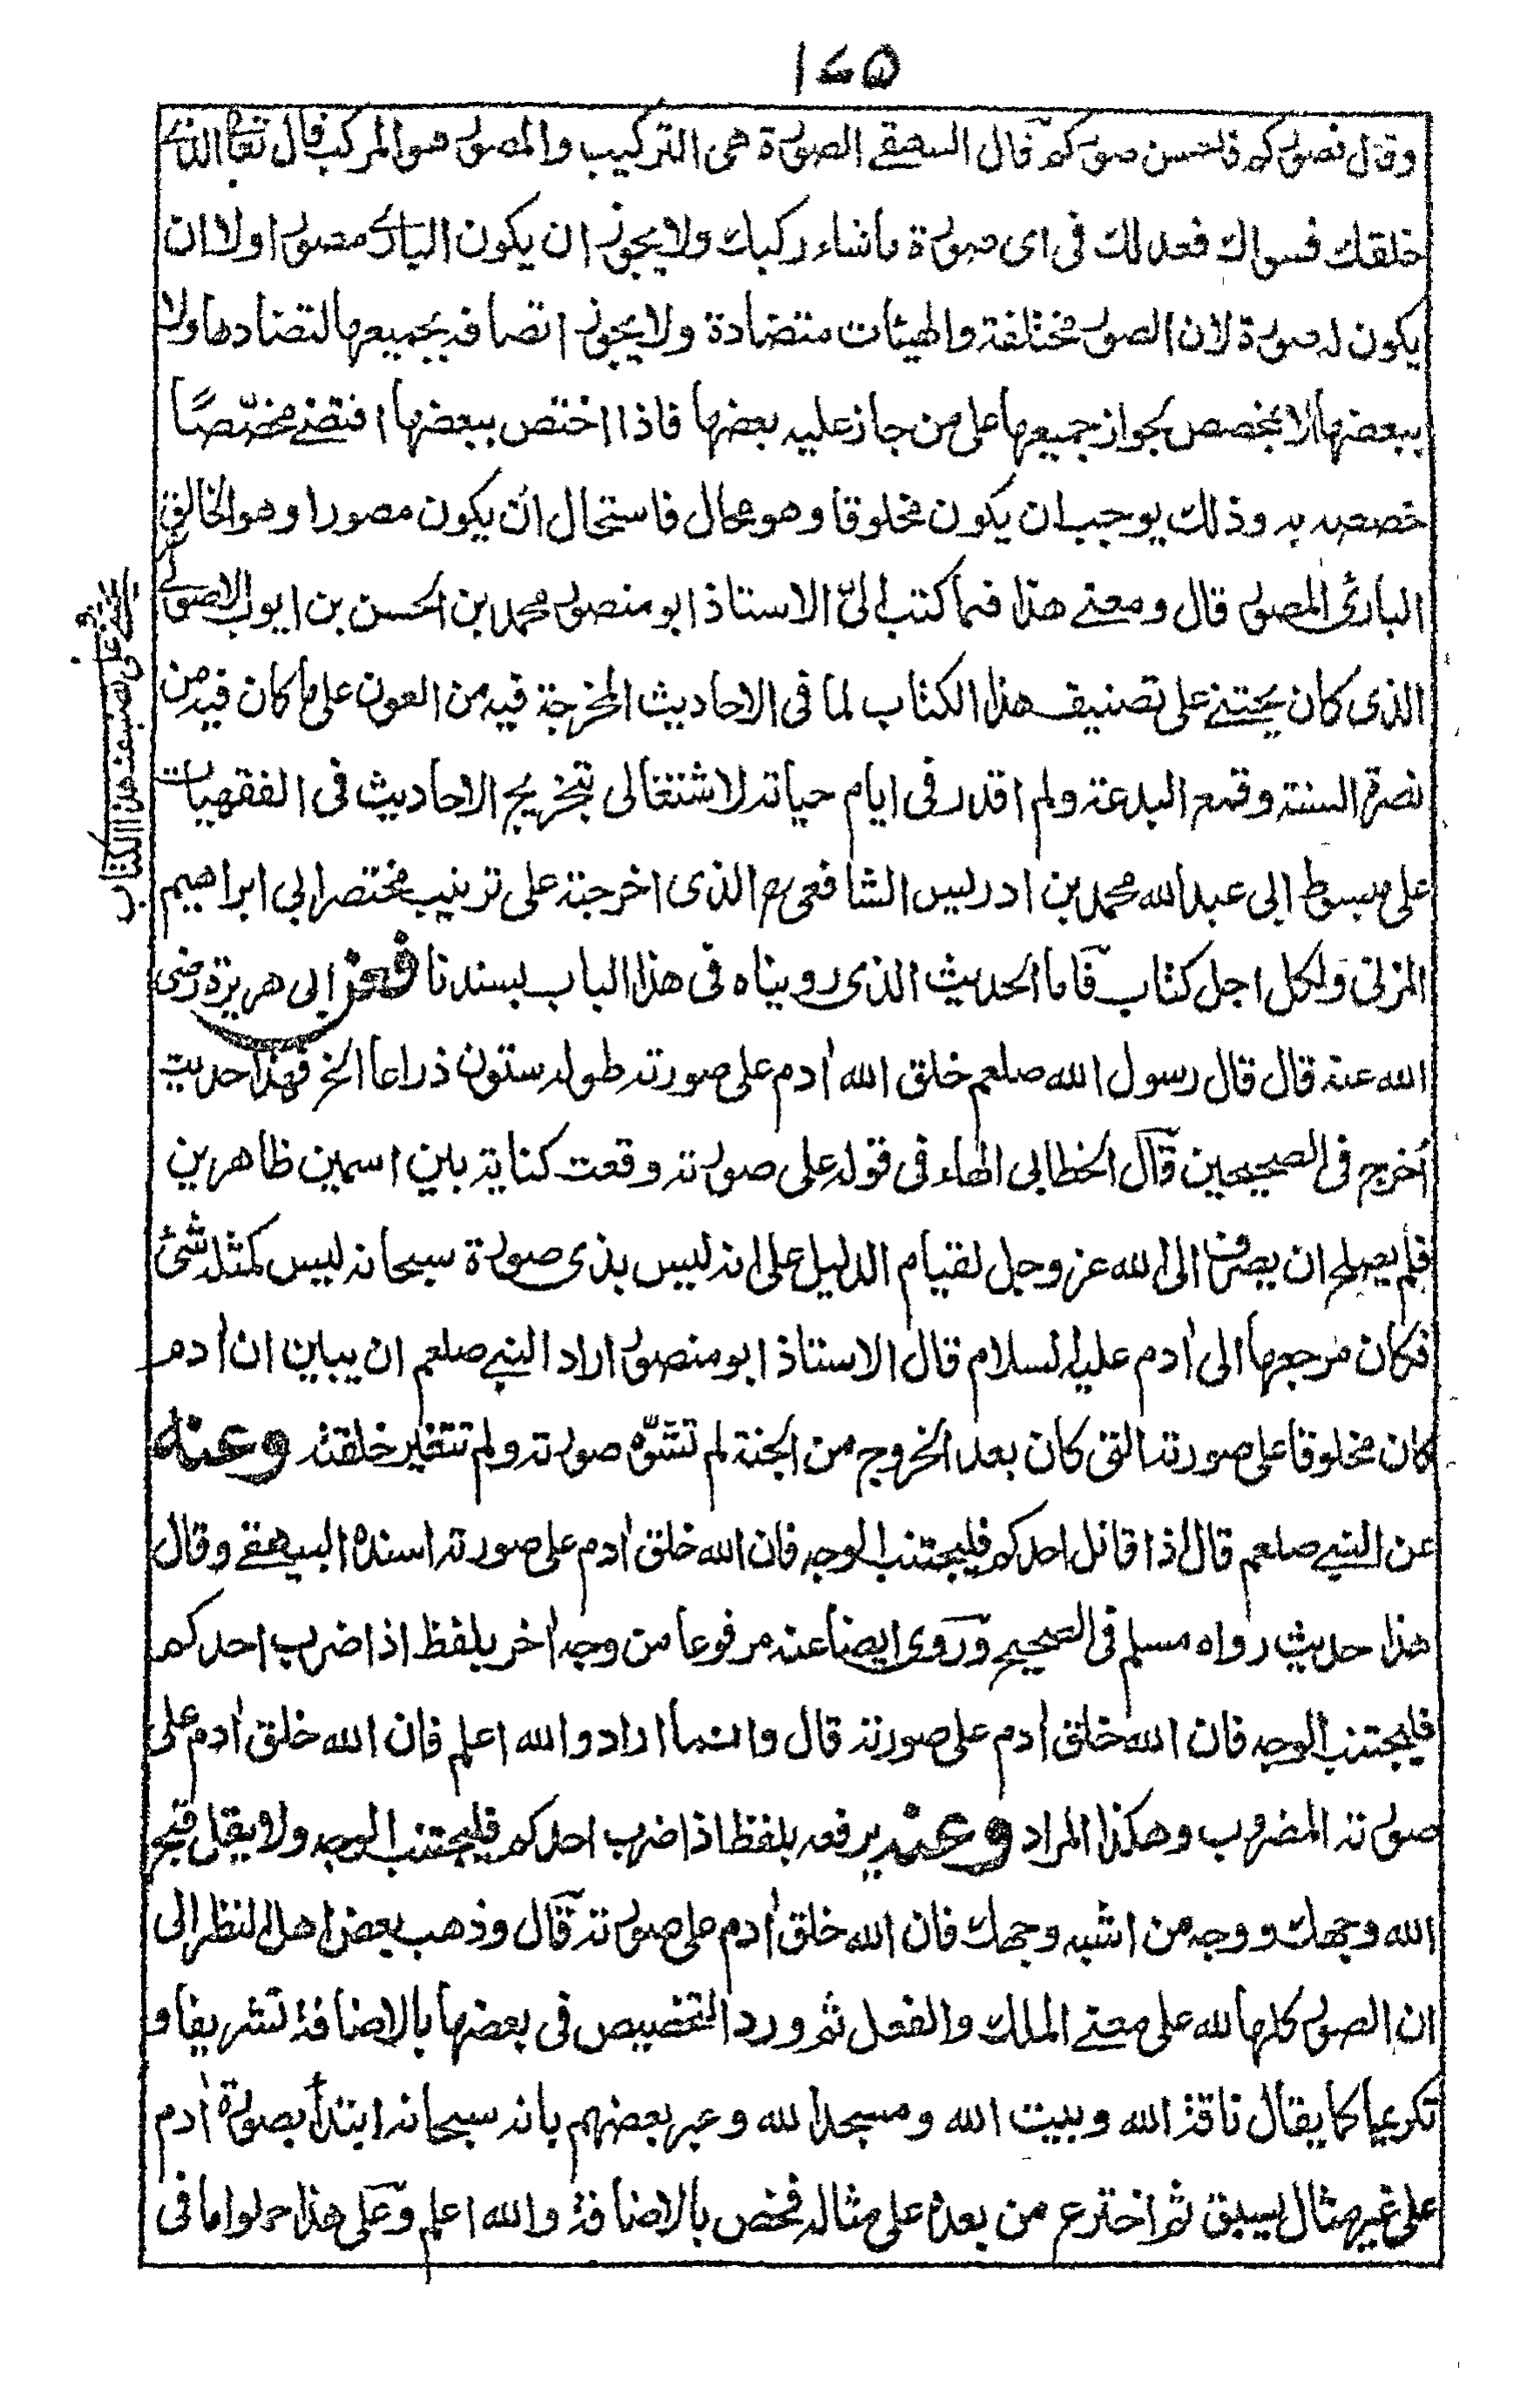 ١٧٥
وقال فصوركم فاحسن صوركم قال البيهقي الصورة هي التركيب والمصور هو المركب قال تعالى الذي
خلقك فسواك فعدلك في اي صورة ما شاء ركبك ولا يجوز ان يكون الباري مصورا ولا ان
يكون له صورة لان الصور مختلفة والهيئات متضادة ولا يجوز اتصافه بجميعها لتضادها ولا
ببعضها الا بمخصص لجواز جميعها على من جاز عليه بعضها فاذا اختص ببعضها اقتضى مخصّصًا
خصصه به وذلك يوجب ان يكون مخلوقا وهو محال فاستحال ان يكون مصورا وهو الخالق
البارئ المصور قال ومعنى هذا فيما كتب اليّ الاستاذ ابو منصور محمد بن الحسن بن ايوب الاصولي
الذي كان يحثني على تصنيف هذا الكتاب لما في الاحاديث المخرجة فيه من العون على ما كان فيه من
نصرة السنة وقمع البدعة ولم اقدر في ايام حياته لاشتغالي بتخريج الاحاديث في الفقهيات
على مبسوط ابي عبد الله محمد بن ادريس الشافعي رح الذي اخرجته على ترتيب مختصر ابي ابراهيم
المزني ولكل اجل كتاب فاما الحديث الذي رويناه في هذا الباب بسندنا فعن ابي هريرة رضى
الله عنه قال قال رسول الله صلعم خلق الله اٰدم على صورته طوله ستون ذراعا الخ فهذا حديث
اُخرج في الصحيحين قال الخطابي الهاء في قوله على صورته وقعت كناية بين اسمين ظاهرين
فلم يصلح ان يصرف الى الله عز وجل لقيام الدليل على انه ليس بذي صورة سبحانه ليس كمثله شئ
فكان مرجعها الى اٰدم عليه السلام قال الاستاذ ابو منصور اراد النبي صلعم ان يبين ان اٰدم
كان مخلوقا على صورته التي كان بعد الخروج من الجنة لم تشوّه صورته ولم تتغير خلقته وعنه
عن النبي صلعم قال اذا قاتل احدكم فليجتنب الوجه فان الله خلق اٰدم على صورته اسنده البيهقي وقال
هذا حديث رواه مسلم في الصحيح وروي ايضا عنه مرفوعا من وجه اٰخر بلفظ اذا ضرب احدكم
فليجتنب الوجه فان الله خلق اٰدم على صورته قال وانما اراد والله اعلم فان الله خلق اٰدم على
صورته المضروب وهكذا المراد وعنه يرفعه بلفظ اذا ضرب احدكم فليجتنب الوجه ولا يقل قبح
الله وجهك ووجه من اشبه وجهك فان الله خلق اٰدم على صورته قال وذهب بعض اهل النظر الى
ان الصور كلها لله على معنى الملك والفعل ثم ورد التخصيص في بعضها بالاضافة تشريفا و
تكريما كما يقال ناقة الله وبيت الله ومسجد الله وعبر بعضهم بانه سبحانه ابتدأ بصورة اٰدم
على غير مثال سبق ثم اخترع من بعده على مثاله فخص بالاضافة والله اعلم وعلى هذا حملوا ما في
على تصنيف هذا الكتاب